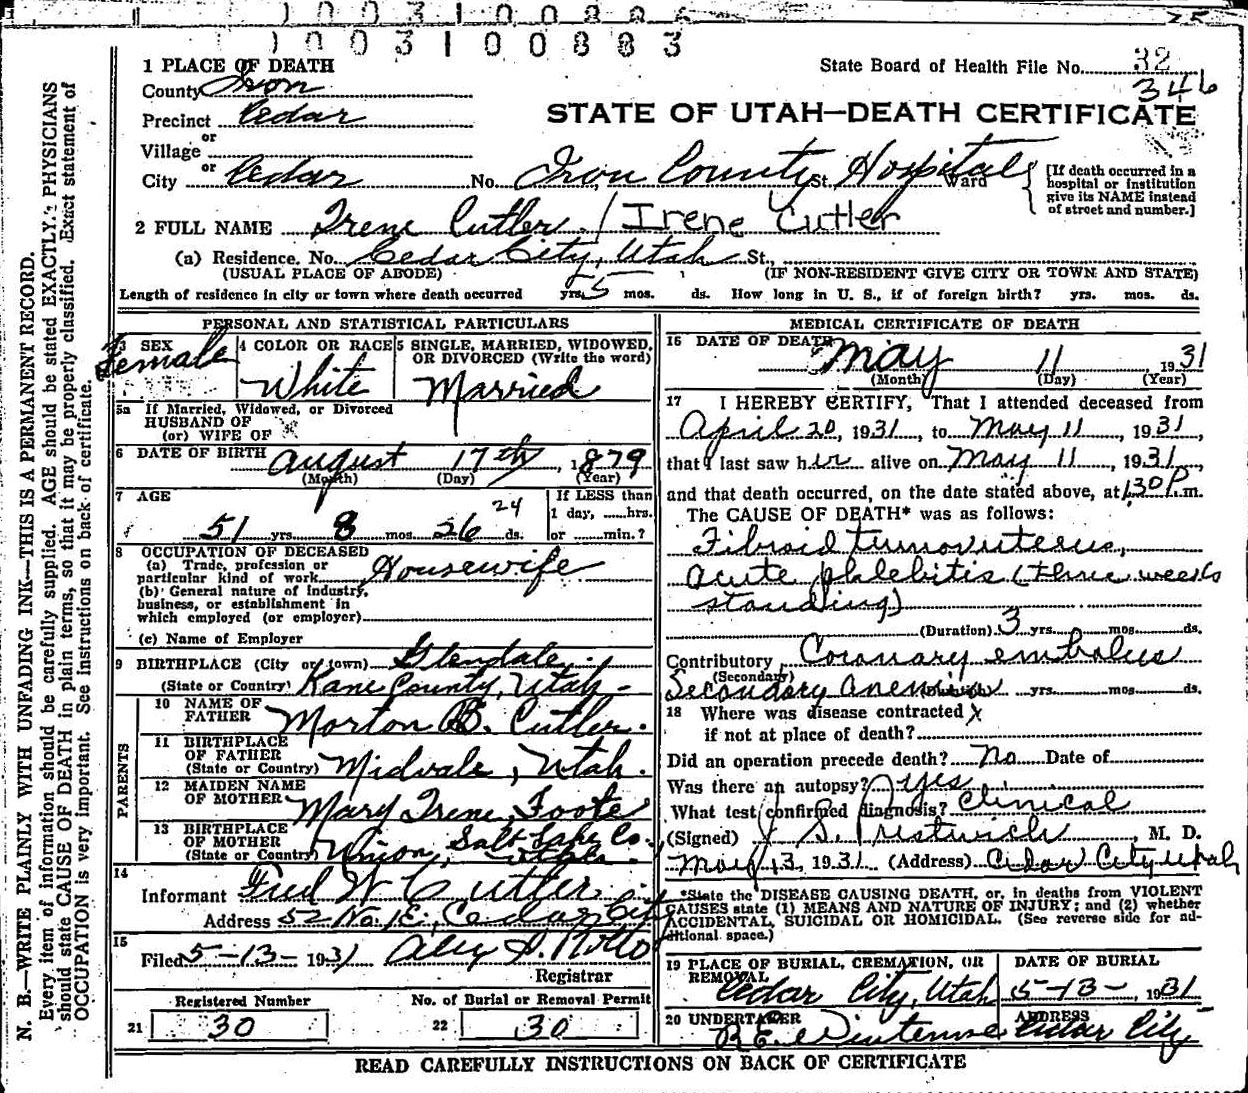 1003100883
1 PLACE OF DEATH
State Board of Health File No. 32
346
County Iron
STATE OF UTAH—DEATH CERTIFICATE
Precinct Cedar
or
Village
or
City Cedar No. Iron County St. Hospital Ward
[If death occurred in a hospital or institution give its NAME instead of street and number.]
2 FULL NAME Irene Cutler / Irene Cutler
(a) Residence. No. Cedar City, Utah St.,
(USUAL PLACE OF ABODE) (IF NON-RESIDENT GIVE CITY OR TOWN AND STATE)
Length of residence in city or town where death occurred yrs. 5 mos. ds. How long in U. S., if of foreign birth? yrs. mos. ds.
PERSONAL AND STATISTICAL PARTICULARS
3 SEX 4 COLOR OR RACE 5 SINGLE, MARRIED, WIDOWED, OR DIVORCED (Write the word)
Female White Married
5a If Married, Widowed, or Divorced
HUSBAND OF
(or) WIFE OF
6 DATE OF BIRTH August 17th, 1879
(Month) (Day) (Year)
7 AGE
If LESS than
1 day, ......hrs.
or ......min.?
51 yrs. 8 mos. 26 24 ds.
8 OCCUPATION OF DECEASED
(a) Trade, profession or
particular kind of work Housewife
(b) General nature of industry,
business, or establishment in
which employed (or employer)
(c) Name of Employer
9 BIRTHPLACE (City or town) Glendale
(State or Country) Kane County, Utah -
PARENTS
10 NAME OF
FATHER Morton B. Cutler.
11 BIRTHPLACE
OF FATHER
(State or Country) Midvale, Utah.
12 MAIDEN NAME
OF MOTHER Mary Irene Foote
13 BIRTHPLACE
OF MOTHER
(State or Country) Union, Salt Lake Co. Utah.
14
Informant Fred W Cutler
Address 52 No. 1E. Cedar City
15
Filed 5-13- 1931
Registrar
Registered Number No. of Burial or Removal Permit
21 30 22 30
MEDICAL CERTIFICATE OF DEATH
16 DATE OF DEATH
May 11 1931
(Month) (Day) (Year)
17 I HEREBY CERTIFY, That I attended deceased from
April 20, 1931, to May 11, 1931,
that I last saw her alive on May 11, 1931,
and that death occurred, on the date stated above, at 1:30 P.m.
The CAUSE OF DEATH* was as follows:
Fibroid tumor uterus,
acute phlebitis (three weeks
standing)
(Duration) 3 yrs. mos. ds.
Contributory Coronary embolus
(Secondary)
Secondary anemia yrs. mos. ds.
18 Where was disease contracted X
if not at place of death?
Did an operation precede death? No Date of
Was there an autopsy? yes
What test confirmed diagnosis? Clinical
(Signed) J. S. Prestwich, M. D.
May 13, 1931 (Address) Cedar City Utah
*State the DISEASE CAUSING DEATH, or, in deaths from VIOLENT
CAUSES state (1) MEANS AND NATURE OF INJURY; and (2) whether
ACCIDENTAL, SUICIDAL OR HOMICIDAL. (See reverse side for ad-
ditional space.)
19 PLACE OF BURIAL, CREMATION, OR REMOVAL DATE OF BURIAL
Cedar City, Utah 5-13-, 1931
20 UNDERTAKER ADDRESS
Cedar City
READ CAREFULLY INSTRUCTIONS ON BACK OF CERTIFICATE
N. B.—WRITE PLAINLY WITH UNFADING INK—THIS IS A PERMANENT RECORD.
Every item of information should be carefully supplied. AGE should be stated EXACTLY. PHYSICIANS
should state CAUSE OF DEATH in plain terms, so that it may be properly classified. Exact statement of
OCCUPATION is very important. See instructions on back of certificate.